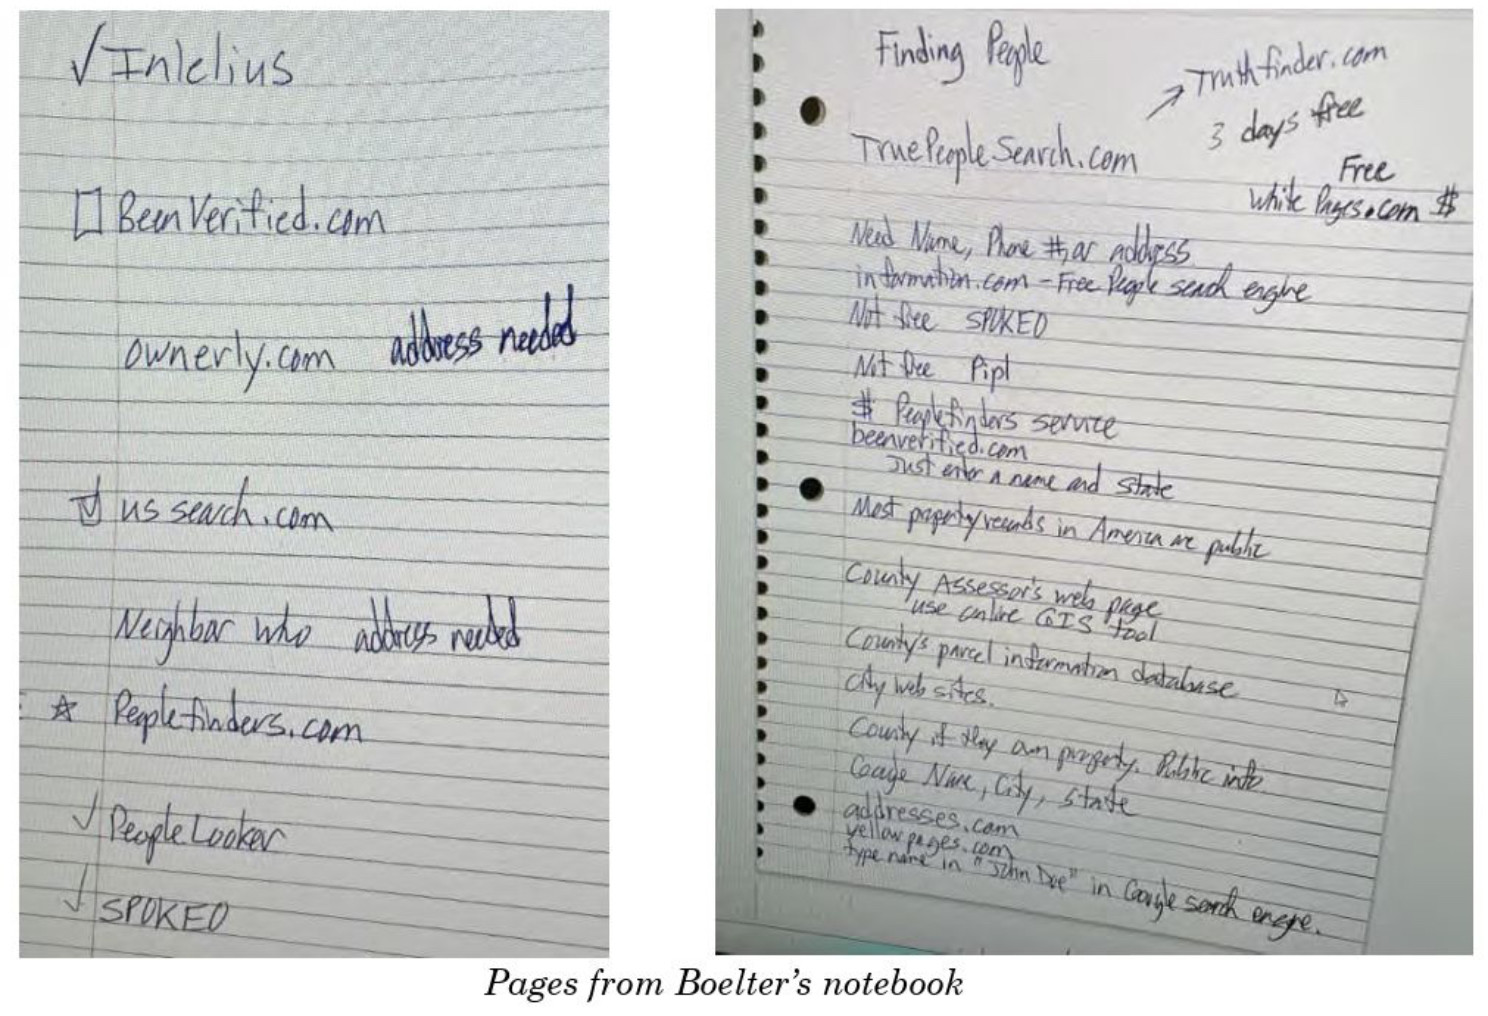 ✓ Intelius
☐ BeenVerified.com
ownerly.com address needed
☑ us search.com
Neighbor who address needed
☆ Peoplefinders.com
✓ PeopleLooker
✓ SPOKEO
Finding People
→ Truthfinder.com
3 days free
TruePeopleSearch.com
Free
White Pages.com $
Need Name, Phone #, or address
information.com - Free People search engine
Not free SPOKEO
Not free Pipl
$ Peoplefinders service
beenverified.com
Just enter a name and state
Most property records in America are public
County Assessor's web page
use online GIS tool
County's parcel information database
City web sites.
County if they own property. Public info.
Google Name, City, State
addresses.com
yellowpages.com
type name in "John Doe" in Google search engine.
Pages from Boelter's notebook